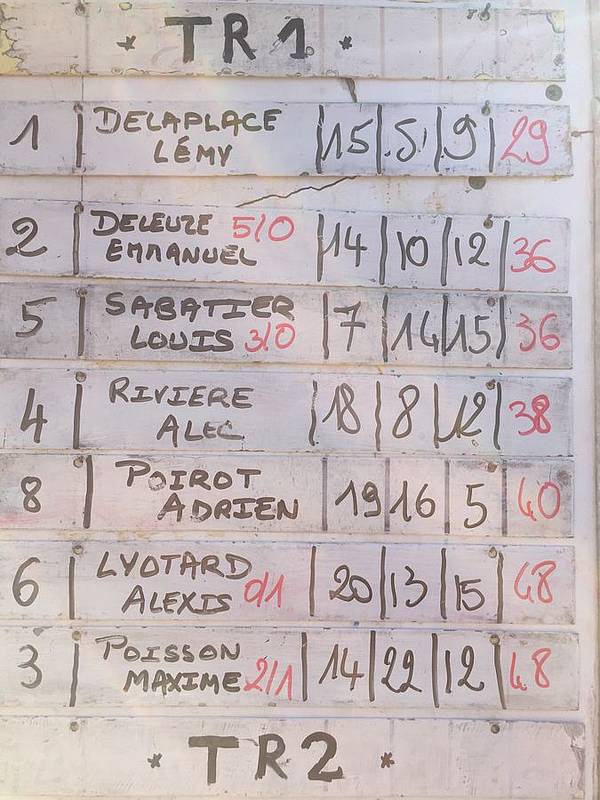 * TR1 *
1 | DELAPLACE LÉMY | 15 | 5 | 9 | 29
2 | DELEUZE 5/0 EMMANUEL | 14 | 10 | 12 | 36
5 | SABATIER LOUIS 3/0 | 7 | 14 | 15 | 36
4 | RIVIERE ALEC | 18 | 8 | 12 | 38
8 | POIROT ADRIEN | 19 | 16 | 5 | 40
6 | LYOTARD ALEXIS 0/1 | 20 | 13 | 15 | 48
3 | POISSON MAXIME 2/1 | 14 | 22 | 12 | 48
* TR2 *